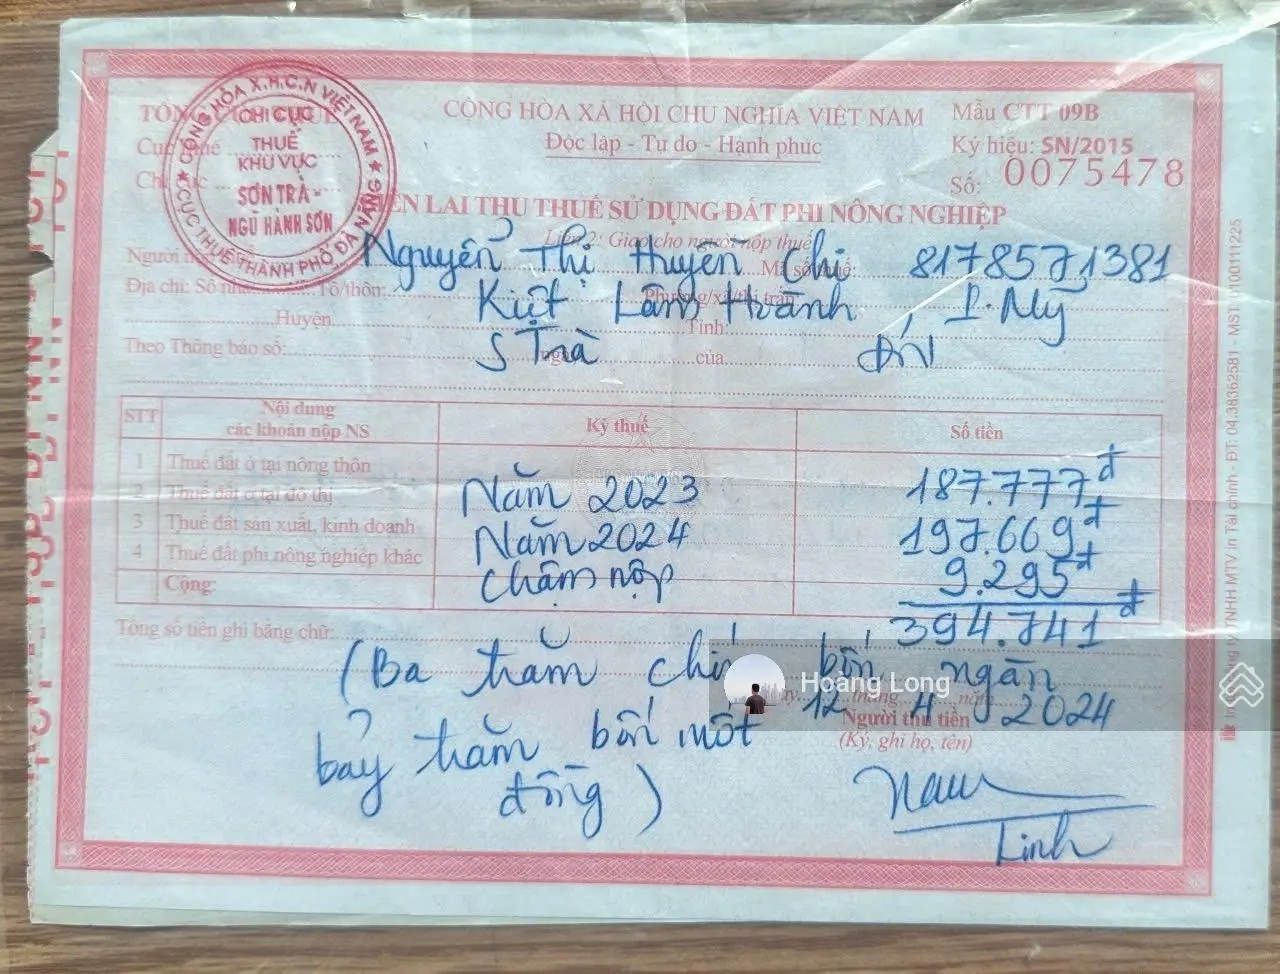 TỔNG CỤC THUẾ
Cục thuế
Chi cục
CỘNG HÒA X.H.C.N VIỆT NAM
CHI CỤC
THUẾ
KHU VỰC
SƠN TRÀ -
NGŨ HÀNH SƠN
CỤC THUẾ THÀNH PHỐ ĐÀ NẴNG
CỘNG HÒA XÃ HỘI CHỦ NGHĨA VIỆT NAM
Độc lập - Tự do - Hạnh phúc
Mẫu CTT 09B
Ký hiệu: SN/2015
Số: 0075478
BIÊN LAI THU THUẾ SỬ DỤNG ĐẤT PHI NÔNG NGHIỆP
Liên 2: Giao cho người nộp thuế
Người Nguyễn Thị Huyền Chi Mã số thuế: 8178571381
Địa chỉ: Số nhà Tổ/thôn: Kiệt Lâm Hoành, P. Mỹ Phường/xã/thị trấn
Huyện Tỉnh:
Theo Thông báo số: S Trà ngày của ĐN
STT Nội dung các khoản nộp NS Kỳ thuế Số tiền
1 Thuế đất ở tại nông thôn
2 Thuế đất ở tại đô thị Năm 2023 187.777đ
3 Thuế đất sản xuất, kinh doanh Năm 2024 197.669đ
4 Thuế đất phi nông nghiệp khác chậm nộp 9.295đ
Cộng: 394.741đ
Tổng số tiền ghi bằng chữ:
(Ba trăm chín bốn ngàn
bảy trăm bốn một
đồng)
Hoàng Long
12 tháng 4 năm 2024
Người thu tiền
(Ký, ghi họ, tên)
Linh
MTV in Tài chính - ĐT: 04.38362581 - MST: 0100111225